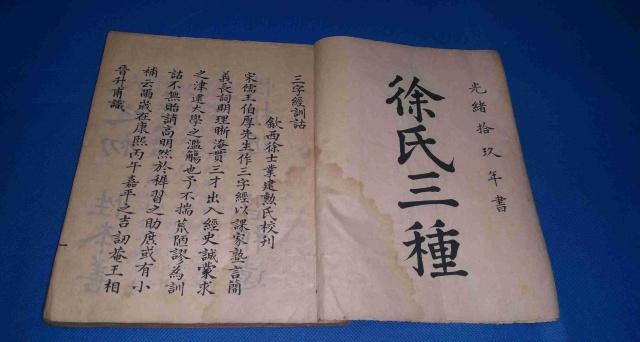 光緒拾玖年書
徐氏三種
三字經訓詁
歙西徐士業建勲氏校刊
宋儒王伯厚先生作三字經以課家塾言簡
義長詞明理晰淹貫三才出入經史誠蒙求
之津逮大學之濫觴也予不揣荒陋謬為訓
詁不無貽誚高明然於稺習之助庶或有小
補云爾歲在康熙丙午嘉平之吉訒菴王相
晉升甫識